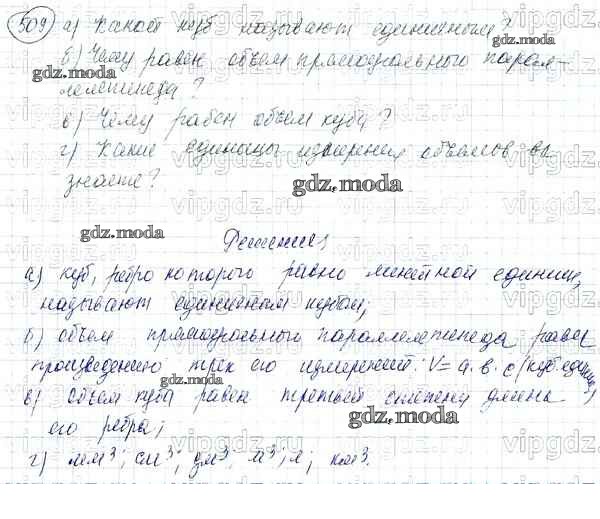 509 а) Какой куб называют единичным?
б) Чему равен объём прямоугольного парал-
лелепипеда?
в) Чему равен объём куба?
г) Какие единицы измерения объёмов вы
знаете?
Решение
а) куб, ребро которого равно линейной единице,
называют единичным кубом;
б) объём прямоугольного параллелепипеда равен
произведению трех его измерений: V = а.в.с (куб.единиц)
в) объём куба равен третьей степени длины
его ребра;
г) мм³; см³; дм³; м³; л; км³.
gdz.moda
gdz.moda
gdz.moda
gdz.moda
gdz.moda
gdz.moda
gdz.moda